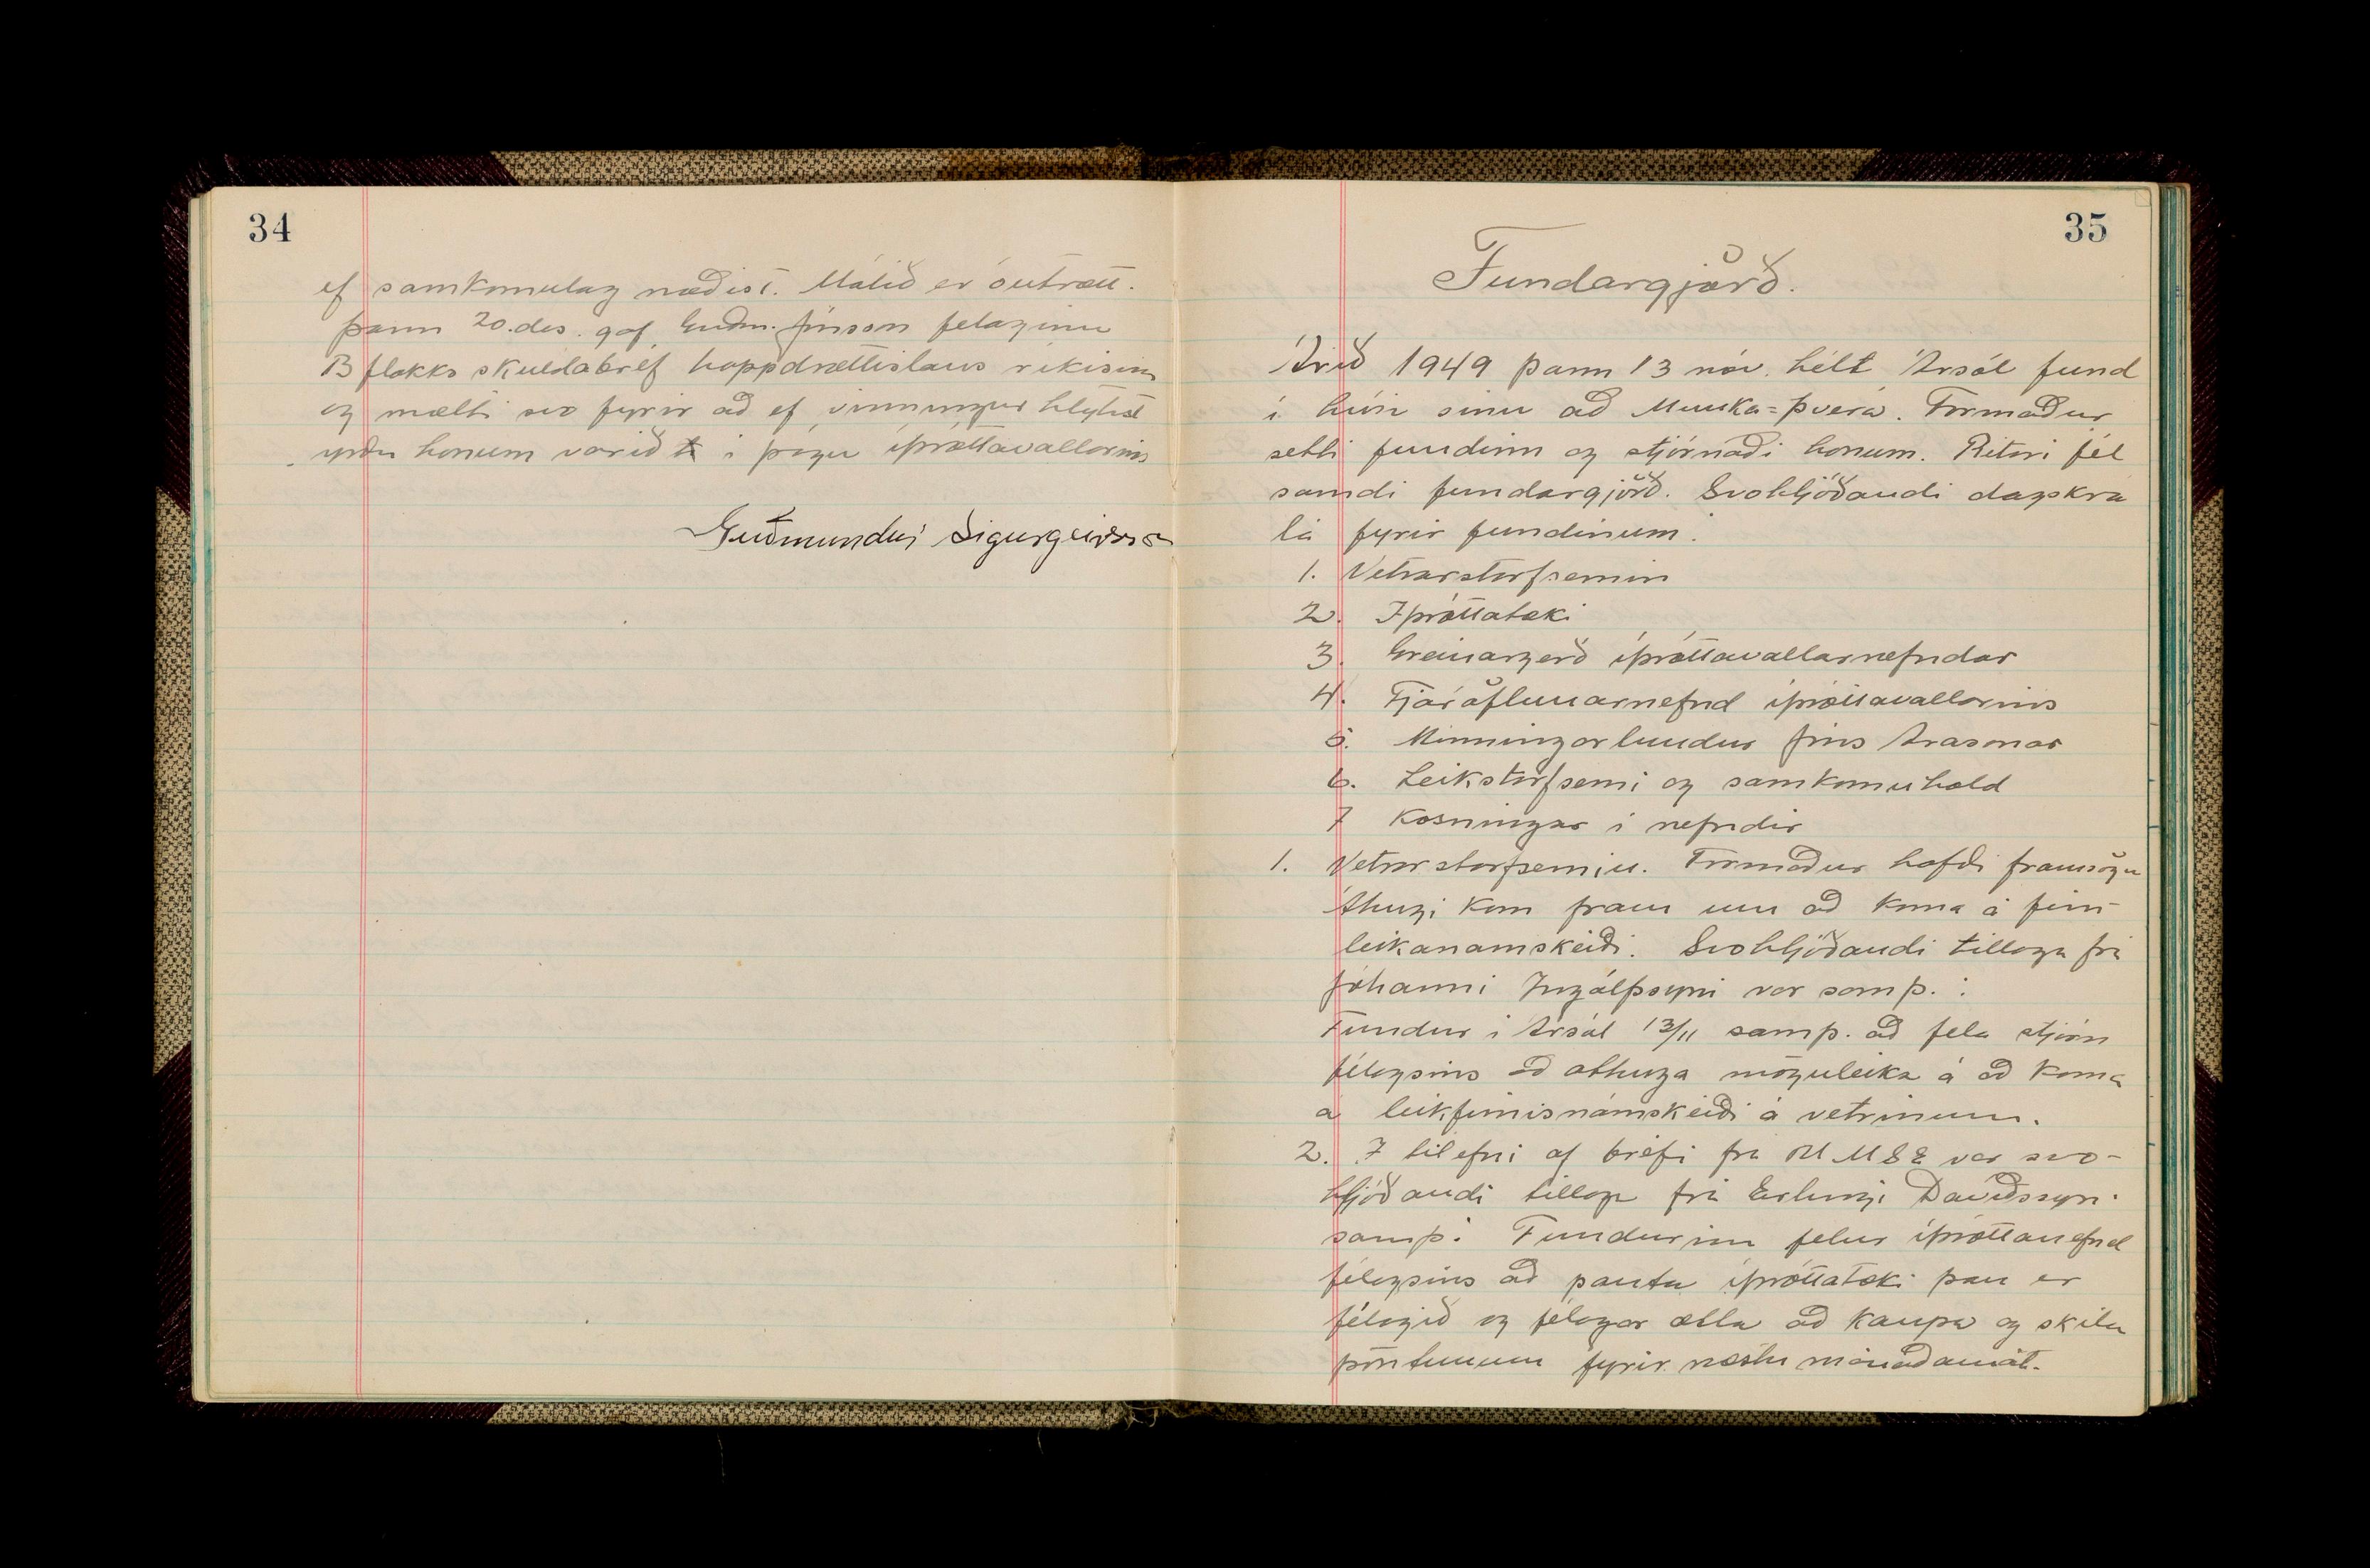 34
ef samkomulag næðist. Málið er óutrætt.
Þann 20. des. gaf Guðm. Jónsson felaginu
B flokks skuldabréf happdrættisláns ríkisins
og mælti svo fyrir að ef vinningur hlytist
yrði honum varið í þágu íþróttavallarins
Guðmundur Sigurgeirsson
35
Fundargjörð.
Árið 1949 þann 13 nóv. hélt Ársól fund
í húsi sínu að Munka=þverá. Formaður
setti fundinn og stjórnaði honum. Ritari fél
samdi fundargjörð. Svohljóðandi dagskrá
lá fyrir fundinum:
1. Vetrarstarfsemin
2. Iþróttatæki
3. Greinargerð íþróttavallarnefndar
4. Fjáröflunarnefnd íþróttavallarins
5. Minningarlundur Jóns Arasonar
6. Leikstarfsemi og samkomuhald
7 Kosningar í nefndir
1. Vetrarstarfsemin. Formaður hafði framsögu
Áhugi kom fram um að koma á fim-
leikanamskeiði. Svohljóðandi tillaga frá
Jóhanni Ingólfssyni var samþ. :
Fundur í Ársól 13/11 samþ. að fela stjórn
félagsins að athuga möguleika á að koma
á leikfimisnámskeiði á vetrinum.
2. I tilefni af bréfi frá UMSE var svo-
hljóðandi tillaga frá Erlingi Davíðssyni
samþ: Fundurinn felur íþróttanefnd
félagsins að panta íþróttatæki þau er
félagið og félagar ætla að kaupa og skila
pöntunum fyrir næstu mánaðamót.